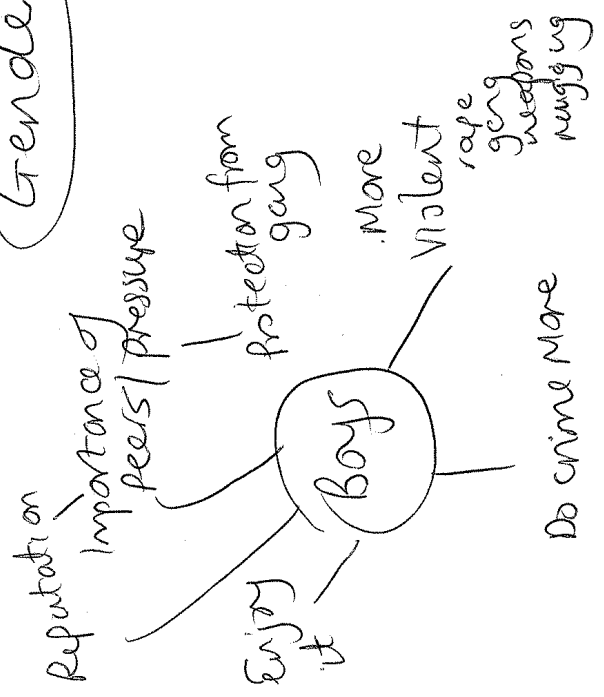 Gende
Reputation
Importance of
peers/pressure
Protection from
gang
More
Violent
rape
gang
weapons
mugging
Boys
Enjoy
it
Do crime More